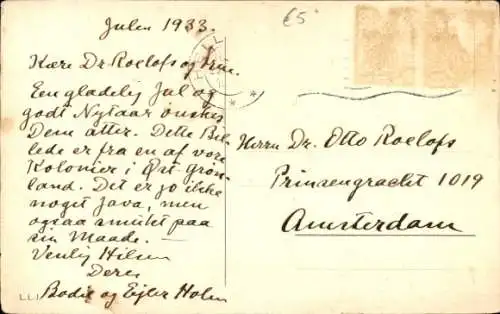 Julen 1933.
€5
Kære Dr. Roelofs og Frue.
Een gladelig Jul og
godt Nytaar ønskes
Dem atter. Dette Bil-
lede er fra en af vore
Kolonier i Øst-Grøn-
land. Det er jo ikke
noget Java, men
ogsaa smukt paa
sin Maade. —
Venlig Hilsen
Deres
Bodil og Ejler Holm
Herrn Dr. Otto Roelofs
Prinsengracht 1019
Amsterdam